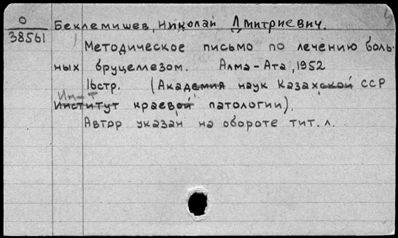 О
38561
Беклемишев, Николай Дмитриевич.
Методическое письмо по лечению боль-
ных бруцеллезом. Алма-Ата, 1952
16стр. (Академия наук Казахской ССР
Ин-т
Институт краевой патологии).
Автор указан на обороте тит. л.